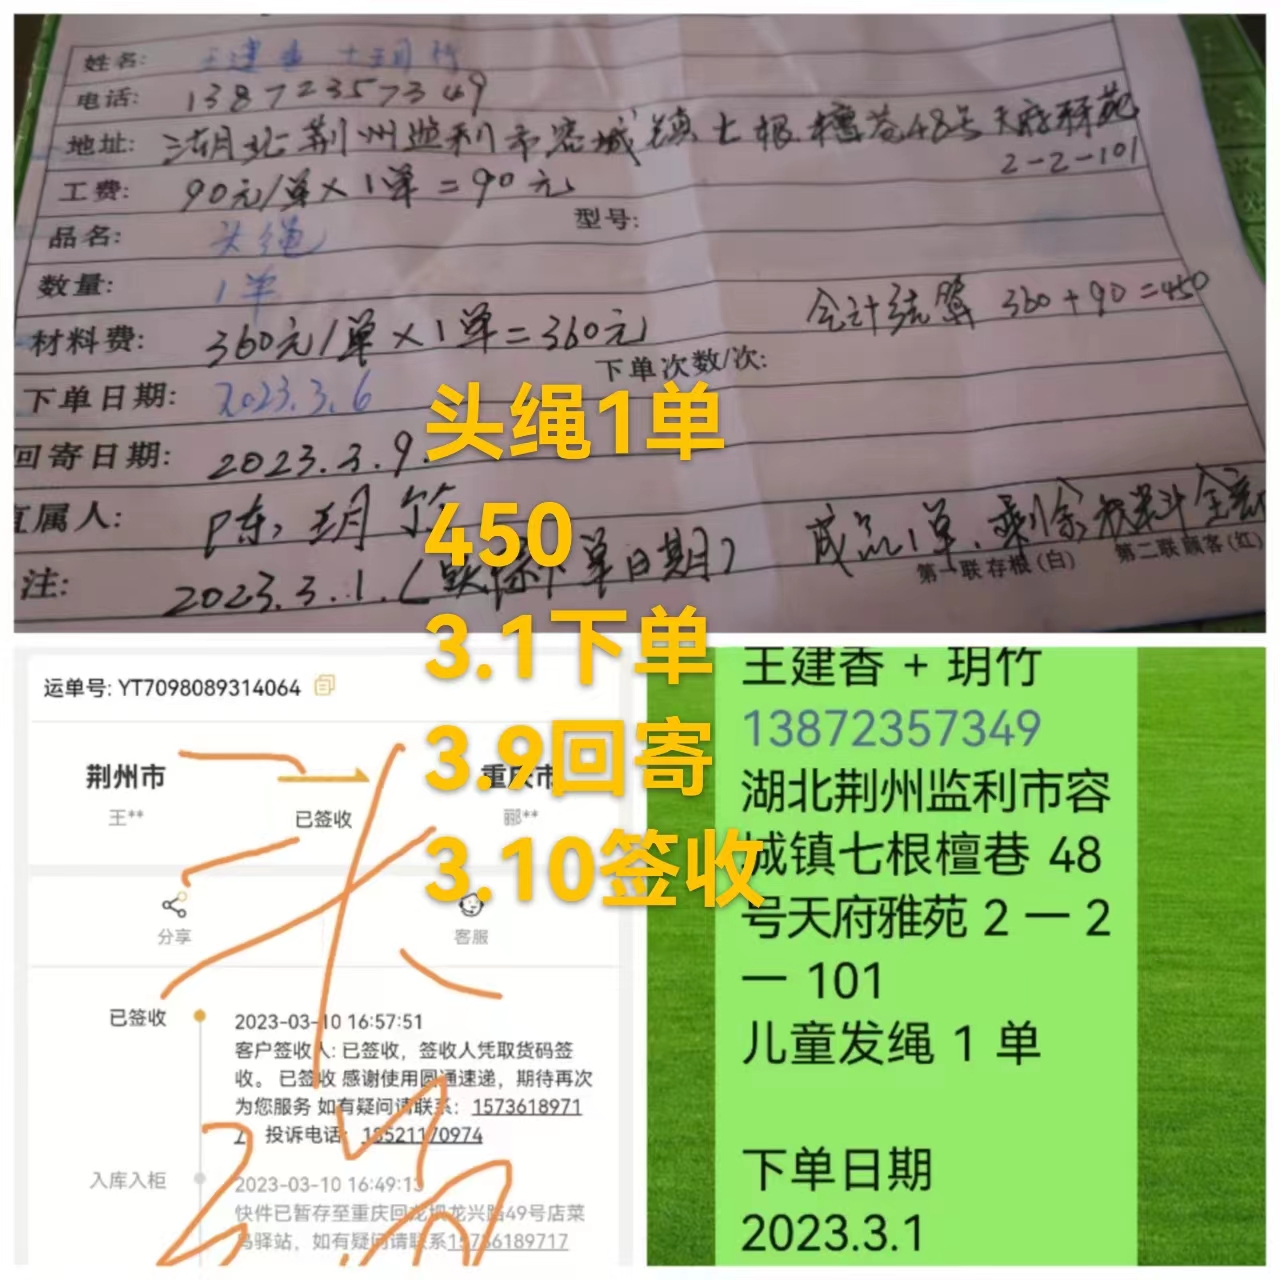 姓名: 王建香 + 玥竹
电话: 13872357349
地址: 湖北荆州监利市容城镇七根檀巷48号天府雅苑
2-2-101
工费: 90元/单×1单=90元
型号:
品名: 头绳
数量: 1单
材料费: 360元/单×1单=360元
会计结算 360+90=450
下单次数/次:
下单日期: 2023.3.6
回寄日期: 2023.3.9.
直属人: 陈玥竹
注: 2023.3.1.(实际下单日期) 成品1单、剩余材料全寄
第一联存根(白) 第二联顾客(红)
头绳1单
450
3.1下单
3.9回寄
3.10签收
运单号: YT7098089314064
荆州市
重庆市
王**
已签收
郦**
分享
客服
已签收
2023-03-10 16:57:51
客户签收人: 已签收，签收人凭取货码签
收。 已签收 感谢使用圆通速递，期待再次
为您服务 如有疑问请联系：1573618971
7，投诉电话：18521170974
入库入柜
2023-03-10 16:49:13
快件已暂存至重庆回龙坝龙兴路49号店菜
鸟驿站，如有疑问请联系15736189717
王建香 + 玥竹
13872357349
湖北荆州监利市容
城镇七根檀巷 48
号天府雅苑 2 一 2
一 101
儿童发绳 1 单
下单日期
2023.3.1